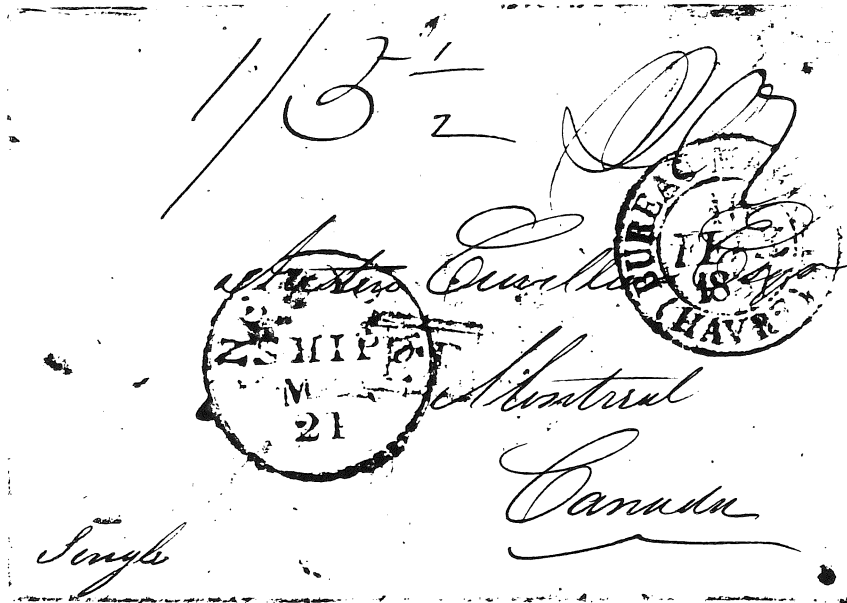 1/5 1/2
BUREAU
18
(HAVRE)
Austin Cuvillier Esqr
SHIP
M
21
Montreal
Canada
Single